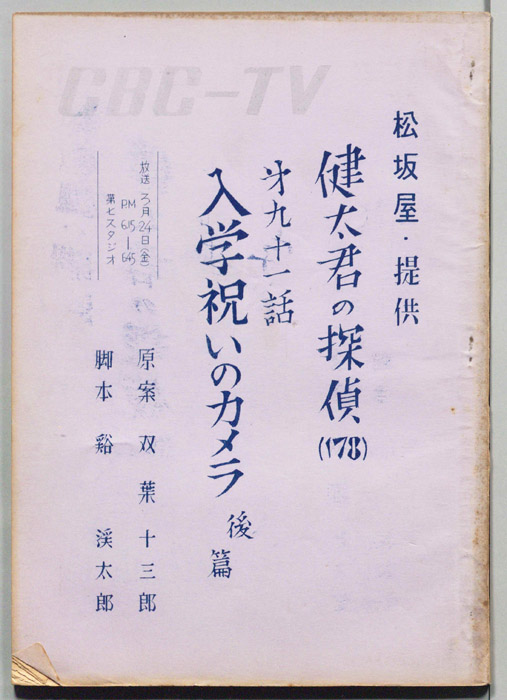 CBC-TV
松坂屋・提供
健太君の探偵(178)
才九十一話
入学祝いのカメラ 後篇
放送 3月24日(金)
PM 6:15―6:45
第七スタジオ
原案 双葉十三郎
脚本 谿 渓太郎